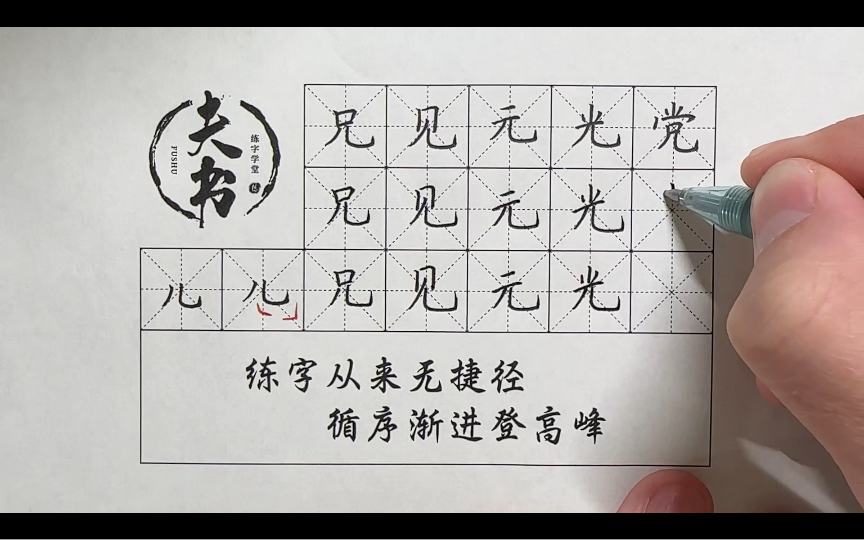 夫书
FUSHU
练字学堂
兄见元光党
兄见元光
儿儿兄见元光
练字从来无捷径
循序渐进登高峰